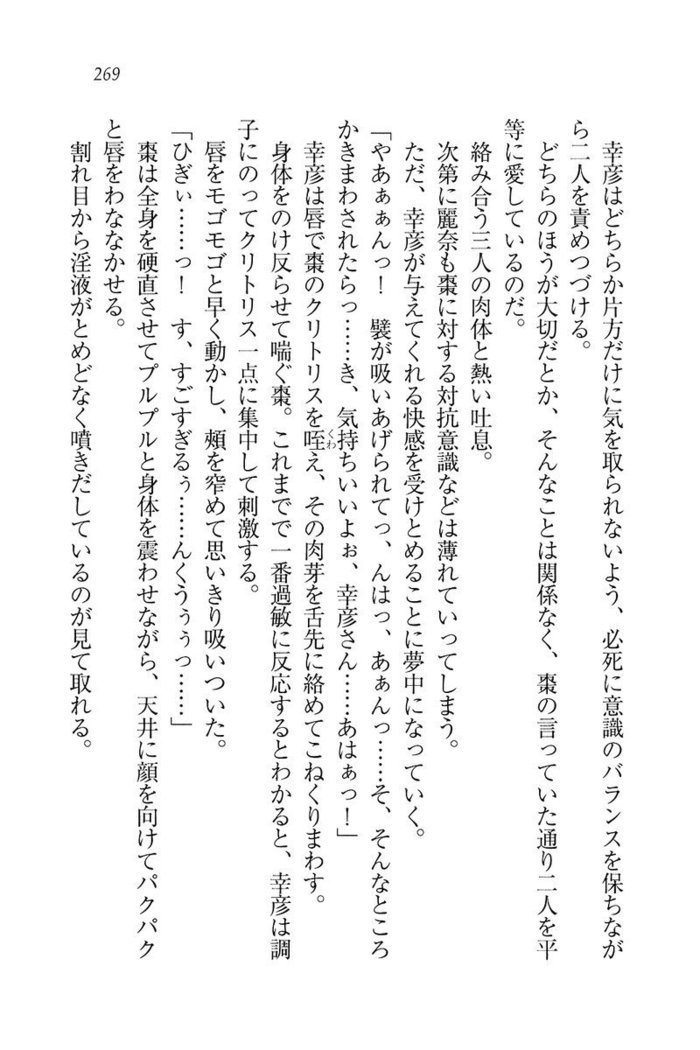 269
幸彦はどちらか片方だけに気を取られないよう、必死に意識のバランスを保ちなが
ら二人を責めつづける。
どちらのほうが大切だとか、そんなことは関係なく、棗の言っていた通り二人を平
等に愛しているのだ。
絡み合う三人の肉体と熱い吐息。
次第に麗奈も棗に対する対抗意識などは薄れていってしまう。
ただ、幸彦が与えてくれる快感を受けとめることに夢中になっていく。
「やあぁぁんっ！　襞が吸いあげられてっ、んはっ、あぁんっ……そ、そんなところ
かきまわされたらっ……き、気持ちいいよぉ、幸彦さん……あはぁっ！」
幸彦は唇で棗のクリトリスを咥え、その肉芽を舌先に絡めてこねくりまわす。
身体をのけ反らせて喘ぐ棗。これまでで一番過敏に反応するとわかると、幸彦は調
子にのってクリトリス一点に集中して刺激する。
唇をモゴモゴと早く動かし、頰を窄めて思いきり吸いついた。
「ひぎぃ……っ！　す、すごすぎるぅ……んくうぅぅっ……」
棗は全身を硬直させてプルプルと身体を震わせながら、天井に顔を向けてパクパク
と唇をわななかせる。
割れ目から淫液がとめどなく噴きだしているのが見て取れる。